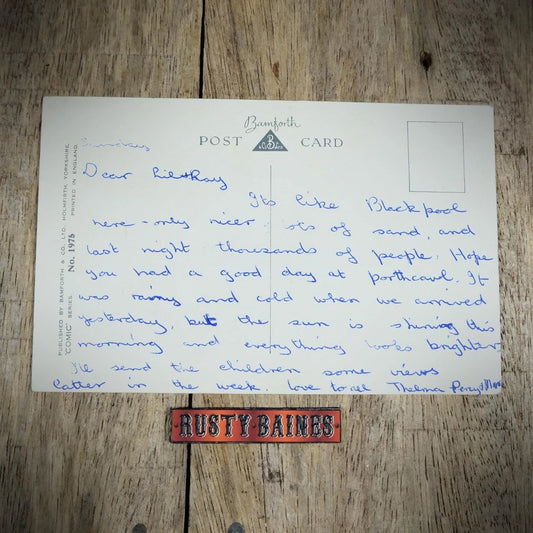 Bamforth
POST CARD
B
& Co Ltd
PUBLISHED BY BAMFORTH & CO. LTD. HOLMFIRTH, YORKSHIRE.
"COMIC" SERIES. No. 1975 PRINTED IN ENGLAND.
Dear
Its like Blackpool
here - only nicer. lots of sand, and
last night thousands of people. Hope
you had a good day at porthcawl. It
was rainy and cold when we arrived
yesterday, but the sun is shining this
morning and everything looks brighter
I'll send the children some views
latter in the week. love to all Thelma Percy &
RUSTY BAINES